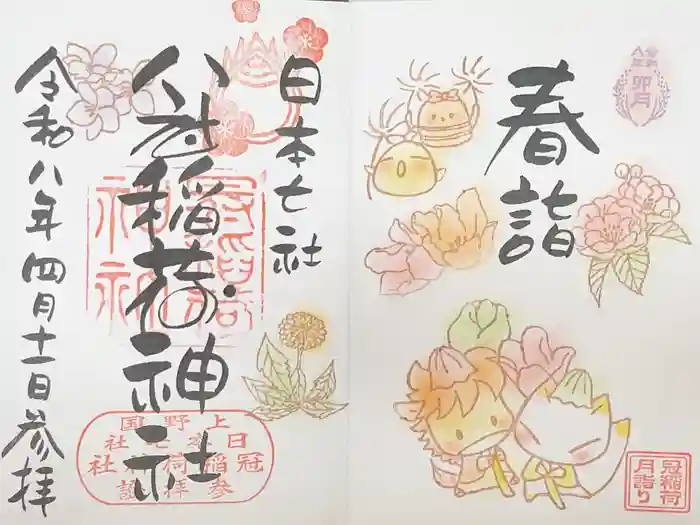 春詣
卯月
冠稲荷
月詣り
日本七社
冠稲荷神社
令和八年四月十一日参拝
上野国
日本七社
冠稲荷神社
参拝